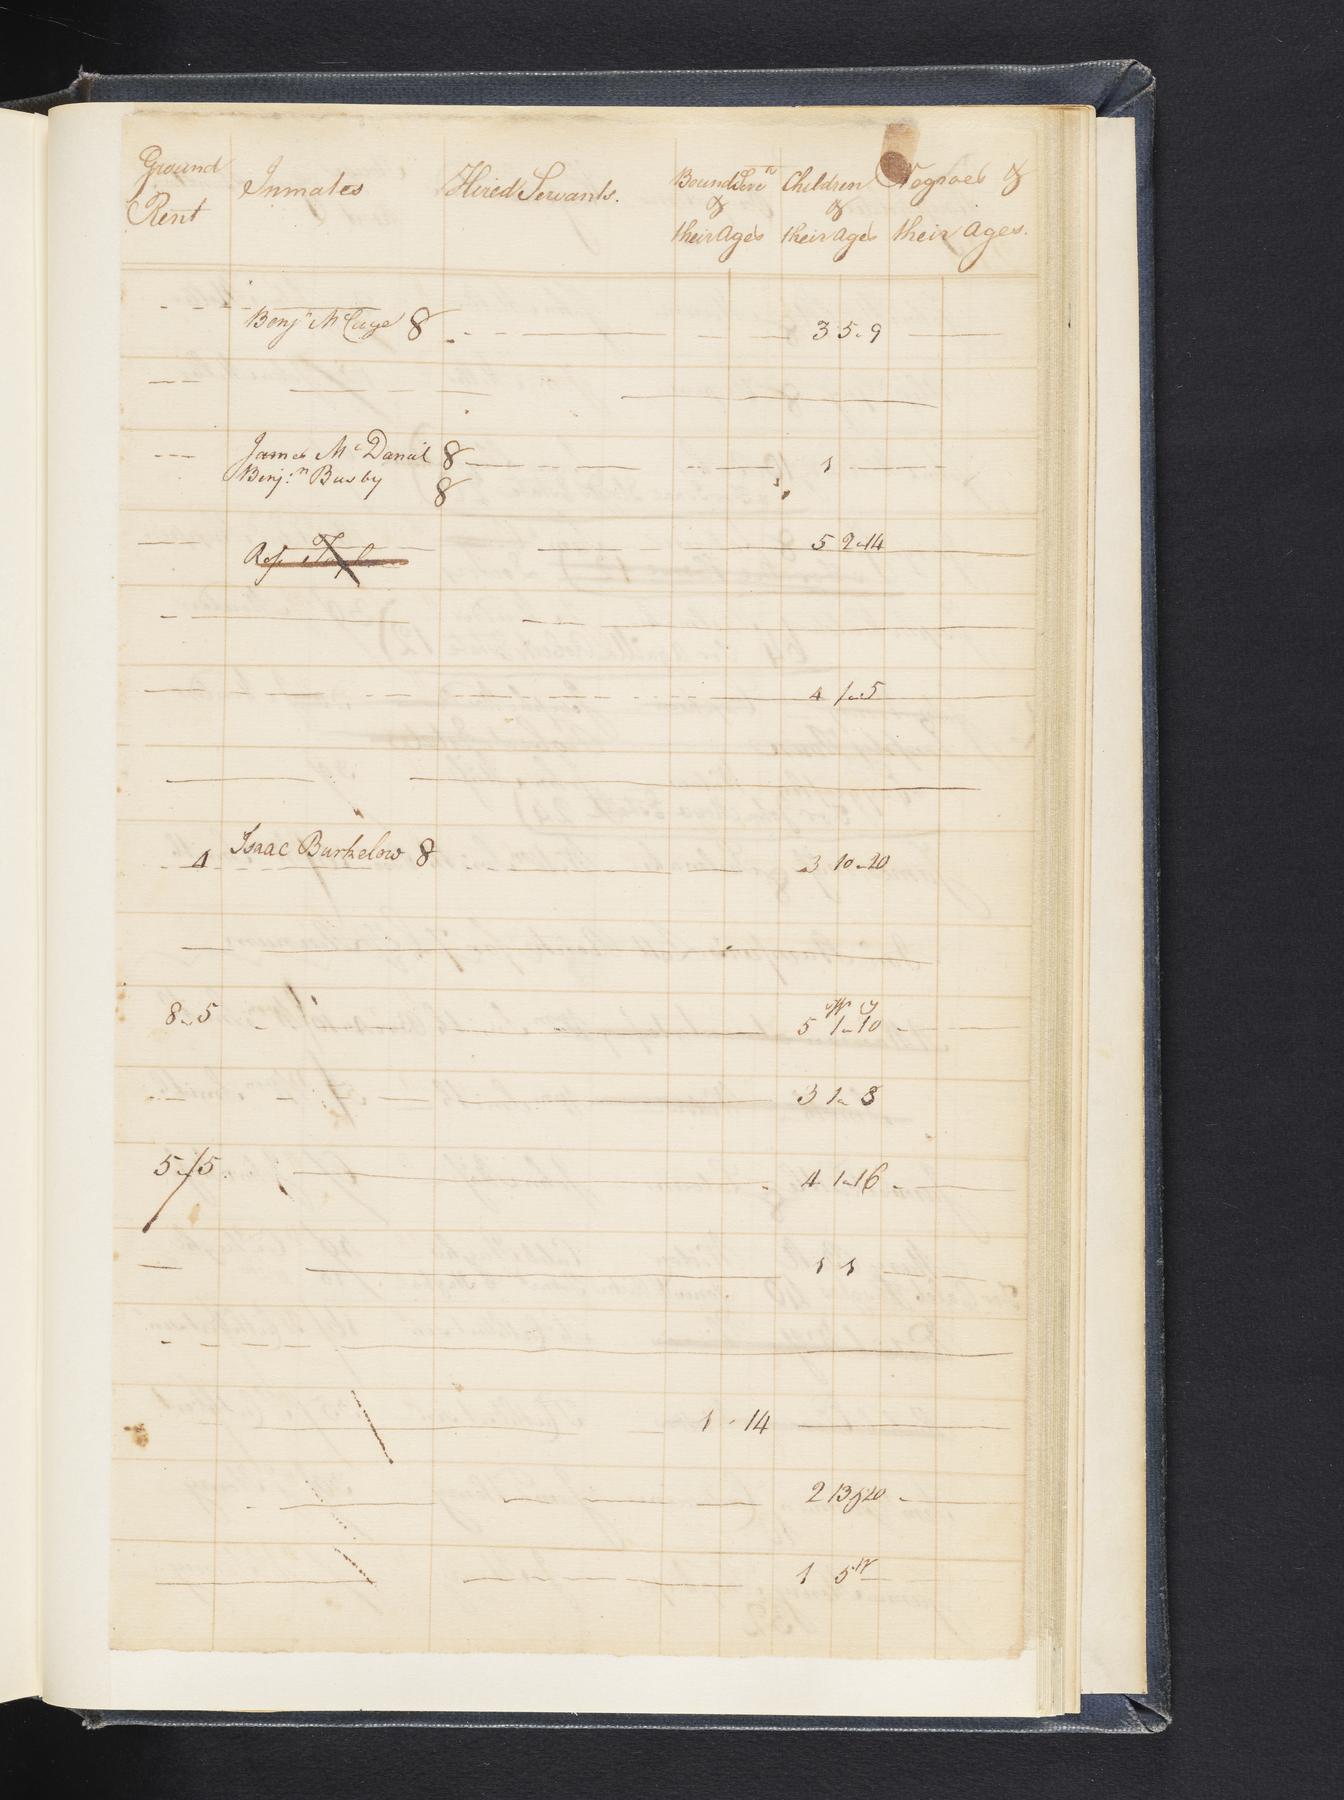 Ground Rent
Inmates
Hired Servants.
Bound Serv.ts & their Ages
Children & their Ages
Negroes & their Ages.
Benj.n McCuge 8 3 5 . 9
James McDanial 8 1
Benj.n Busby 8
5 2-14
4 1-5
4 Isaac Burkelow 8 3 10-20
8-5 5 1-10
3 1-8
5-/5. 4 1-16
1 1
1 - 14
2 13 & 20
1 5